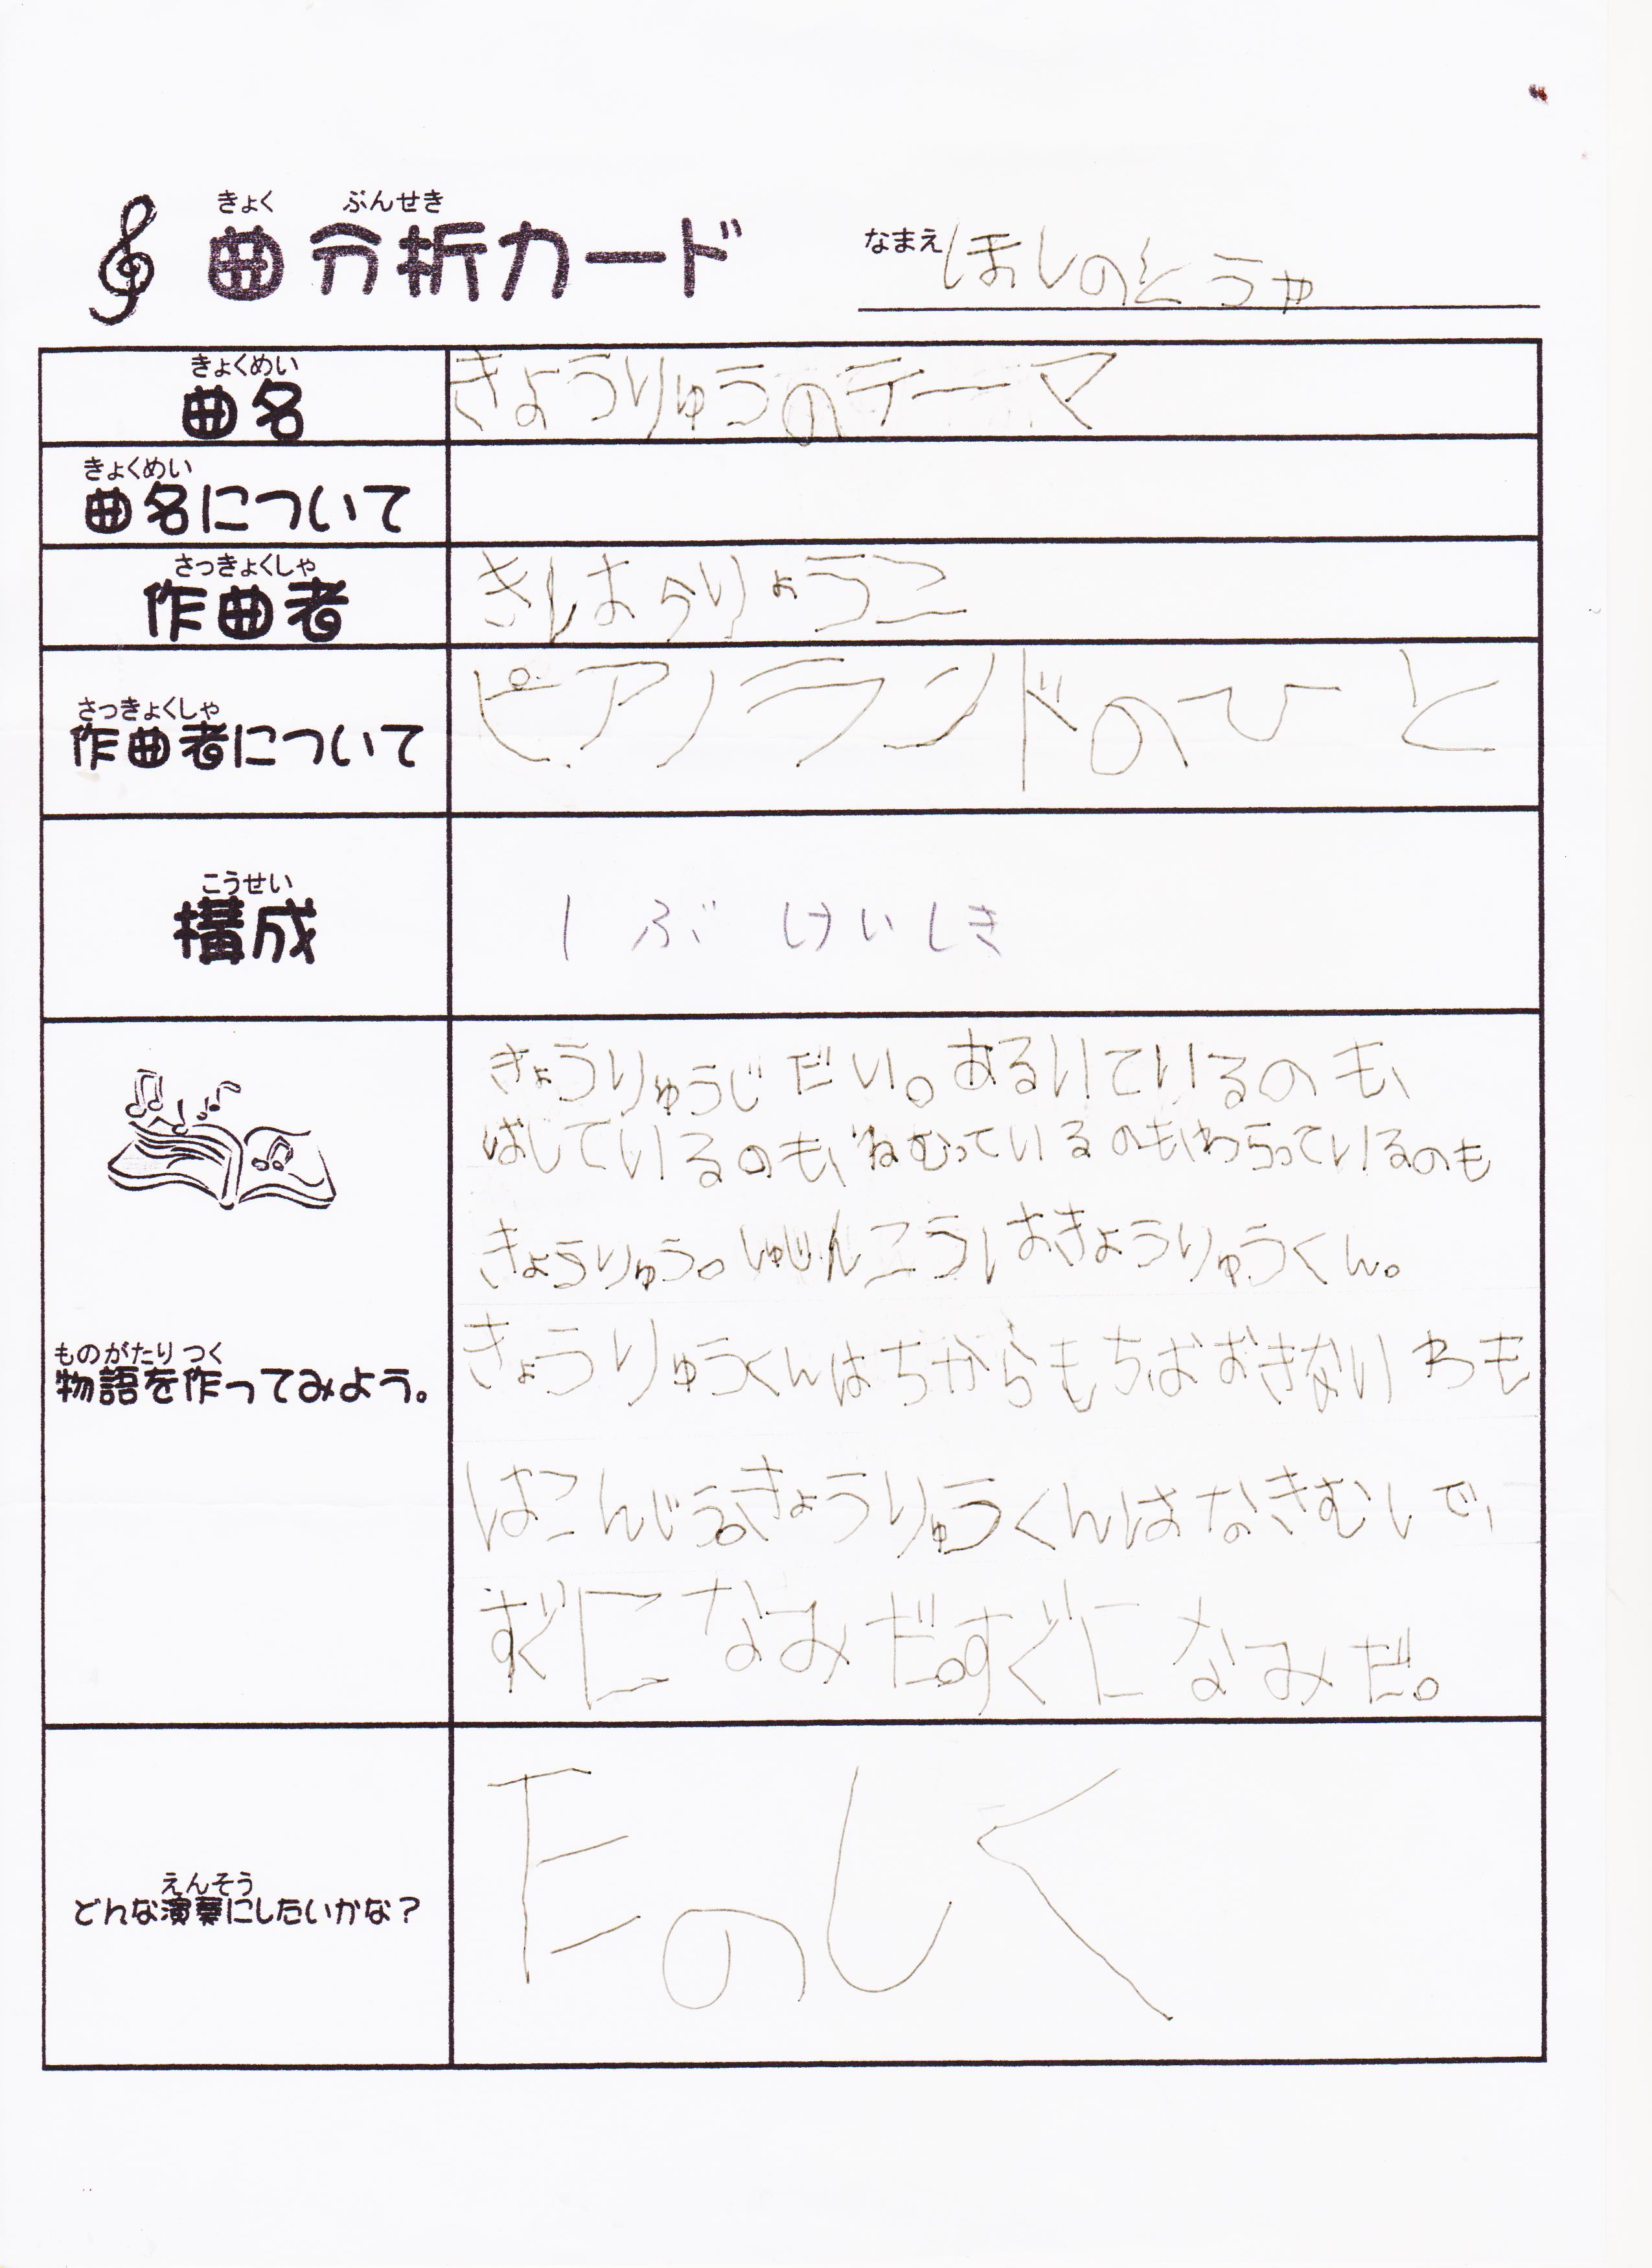 きょく ぶんせき
曲分析カード
なまえ ほしのそうや
きょくめい
曲名
きょうりゅうのテーマ
きょくめい
曲名について
さっきょくしゃ
作曲者
きはらりょうこ
さっきょくしゃ
作曲者について
ピアノランドのひと
こうせい
構成
1ぶけいしき
きょうりゅうじだい。あるいているのも、
はしているのも、ねむっているのも、わらっているのも
きょうりゅう。しゅじんこうはきょうりゅうくん。
ものがたり つく
物語を作ってみよう。
きょうりゅうくんはちからもちおおきないわも
はこんじゃう。きょうりゅうくんはなきむしで、
すぐになみだ。すぐになみだ。
えんそう
どんな演奏にしたいかな？
たのしく